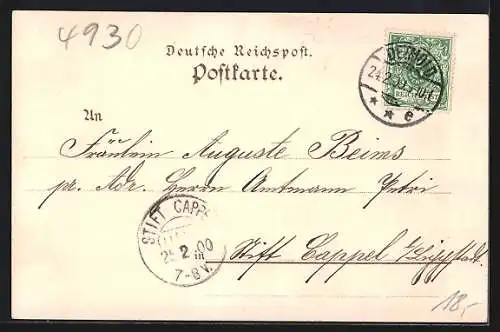 4930
Deutsche Reichspost.
Postkarte.
DETMOLD
24.2.
* * e
An
Fräulein Auguste Beims
pr. Adr. Herrn Amtmann Petri
STIFT CAPPEL
25 2 00
7-8 V.
in Stift Cappel b/Lippstadt.
18,-